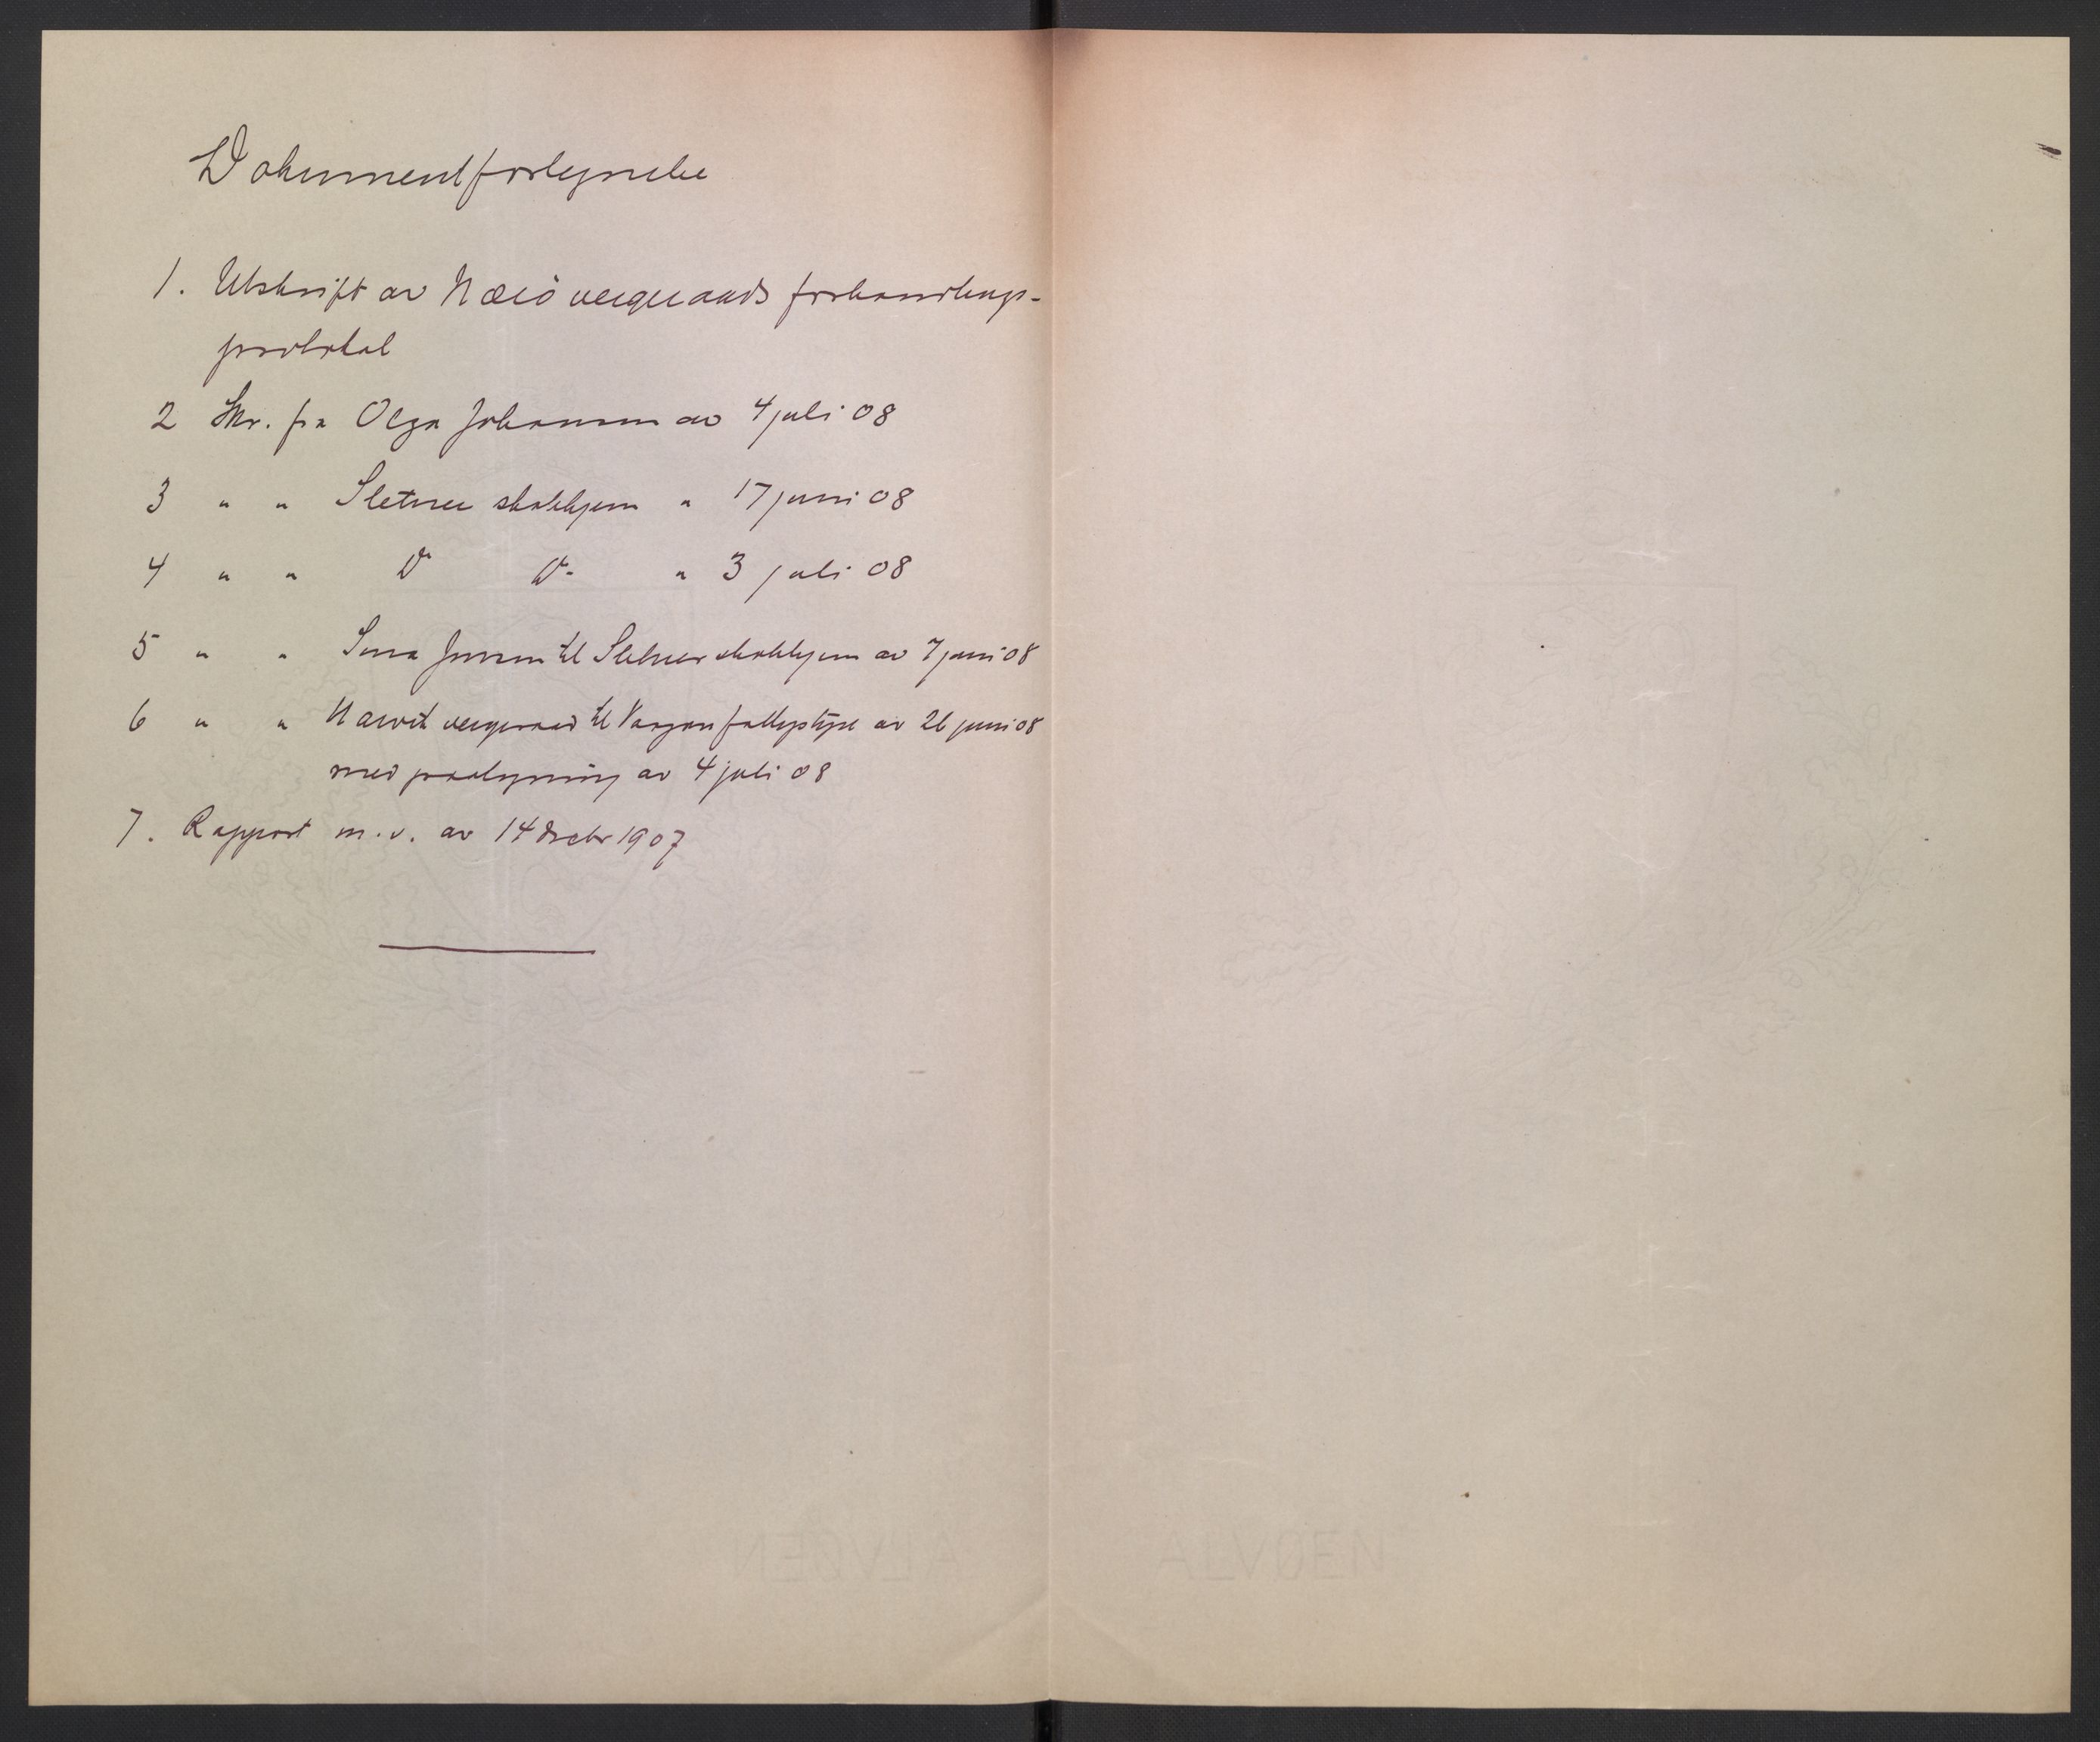 Dokumentfortegnelse
1. Utskrift av Nærö vergeraads forhandlings-
protokol
2 Skr. fra Olga Johansen av 4 juli 08
3 " " Sletner skolehjem " 17 juni 08
4 " " Do Do " 3 juli 08
5 " " Jensen til Sletner skolehjem av 7 juni 08
6 " " vergeraad til Vaagan fattigstyre av 26 juni 08
med paategning av 4 juli 08
7. Rapport m.v. av 14 decbr 1907
ALVØEN
ALVØEN